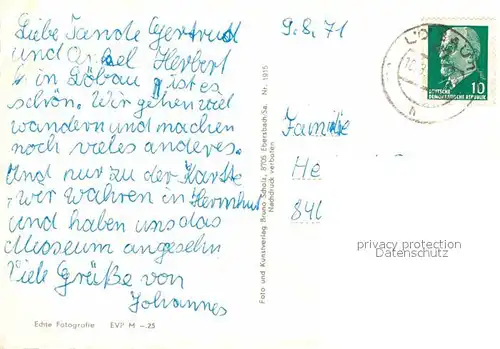 Liebe Tande Gertrud
und Onkel Herbert
in Löbau ist es
schön. Wir gehen viel
wandern und machen
noch vieles anderes.
Und nur zu der Karte
wir wahren in Herrnhut
und haben uns das
Museum angesehn
Viele Grüße von
Johannes
Echte Fotografie EVP M -.25
Foto und Kunstverlag Bruno Scholz, 8705 Ebersbach/Sa. Nr. 1915
Nachdruck verboten
9.8.71
10
DEUTSCHE
DEMOKRATISCHE REPUBLIK
Familie
He
841
privacy protection
Datenschutz